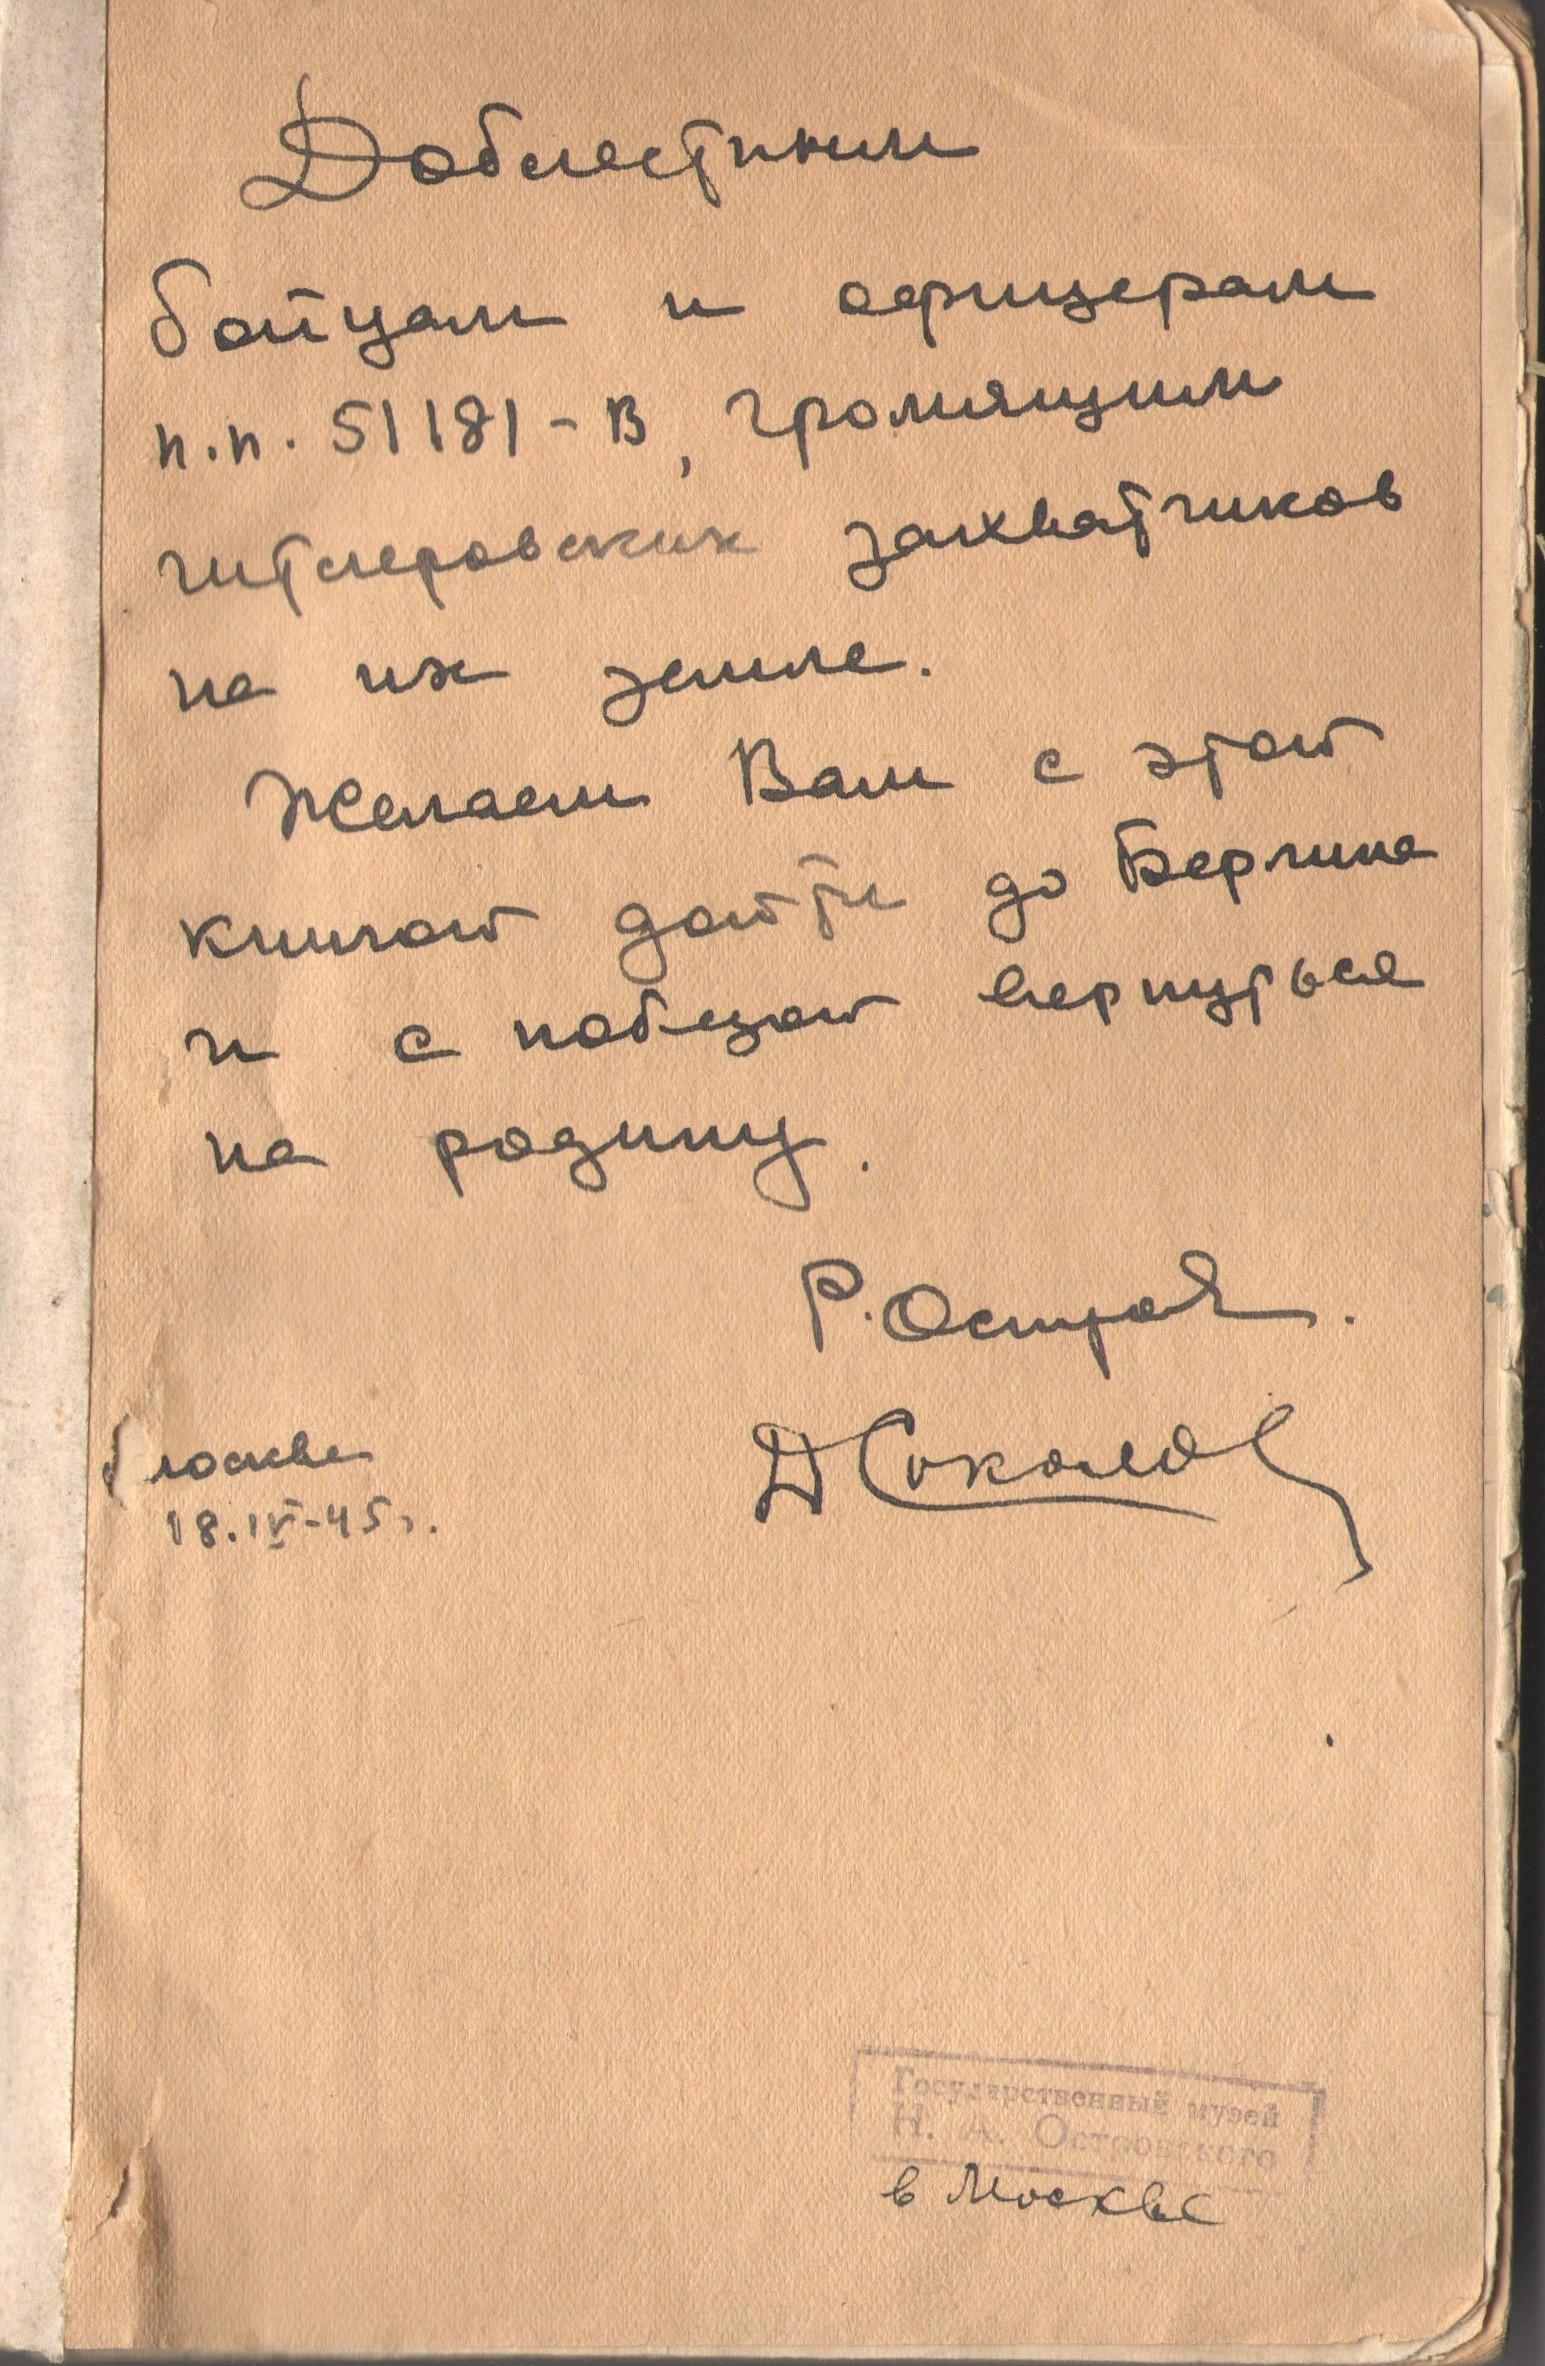 Доблестным
бойцам и офицерам
п.п. 51181-В, громящим
гитлеровских захватчиков
на их земле.
Желаем Вам с этой
книгой дойти до Берлина
и с победой вернуться
на родину.
Р. Остров.
Д Соколов
Москва
18.IV-45г.
Государственный музей
Н. А. Островского
в Москве